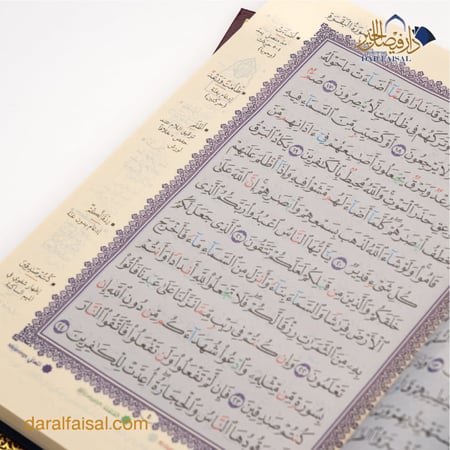 دار فيصل الحر
DAR FAISAL
سُورَةُ الْبَقَرَةِ
تَوْقَدَ نَارًا فَلَمَّآ أَضَآءَتْ مَا حَوْلَهُۥ
وَتَرَكَهُمْ فِي ظُلُمَٰتٍ لَّا يُبْصِرُونَ ١٧ صُمٌّ
لَا يَرْجِعُونَ ١٨ أَوْ كَصَيِّبٍ مِّنَ ٱلسَّمَآءِ فِيهِ
وَرَعْدٌ وَبَرْقٌ يَجْعَلُونَ أَصَٰبِعَهُمْ فِيٓ ءَاذَانِهِم مِّنَ
حَذَرَ ٱلْمَوْتِ وَٱللَّهُ مُحِيطٌۢ بِٱلْكَٰفِرِينَ ١٩ يَكَادُ ٱلْبَرْقُ
يَخْطَفُ أَبْصَٰرَهُمْ كُلَّمَآ أَضَآءَ لَهُم مَّشَوْا۟ فِيهِ وَإِذَآ أَظْلَمَ عَلَيْهِمْ
قَامُوا۟ وَلَوْ شَآءَ ٱللَّهُ لَذَهَبَ بِسَمْعِهِمْ وَأَبْصَٰرِهِمْ إِنَّ ٱللَّهَ عَلَىٰ
كُلِّ شَيْءٍ قَدِيرٌ ٢٠ يَٰٓأَيُّهَا ٱلنَّاسُ ٱعْبُدُوا۟ رَبَّكُمُ ٱلَّذِي
خَلَقَكُمْ وَٱلَّذِينَ مِن قَبْلِكُمْ لَعَلَّكُمْ تَتَّقُونَ ٢١ ٱلَّذِي جَعَلَ لَكُمُ
ٱلْأَرْضَ فِرَٰشًا وَٱلسَّمَآءَ بِنَآءً وَأَنزَلَ مِنَ ٱلسَّمَآءِ مَآءً فَأَخْرَجَ
بِهِۦ مِنَ ٱلثَّمَرَٰتِ رِزْقًا لَّكُمْ فَلَا تَجْعَلُوا۟ لِلَّهِ أَندَادًا وَأَنتُمْ
تَعْلَمُونَ ٢٢ وَإِن كُنتُمْ فِي رَيْبٍ مِّمَّا نَزَّلْنَا عَلَىٰ عَبْدِنَا فَأْتُوا۟
بِسُورَةٍ مِّن مِّثْلِهِۦ وَٱدْعُوا۟ شُهَدَآءَكُم مِّن دُونِ ٱللَّهِ إِن
كُنتُمْ صَٰدِقِينَ ٢٣ فَإِن لَّمْ تَفْعَلُوا۟ وَلَن تَفْعَلُوا۟ فَٱتَّقُوا۟ ٱلنَّارَ
وَقُودُهَا ٱلنَّاسُ وَٱلْحِجَارَةُ أُعِدَّتْ لِلْكَٰفِرِينَ ٢٤
daralfaisal.com